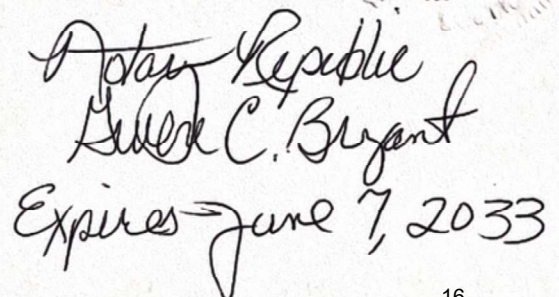 Notary Republic
Gwen C. Bryant
Expires-June 7, 2033
16